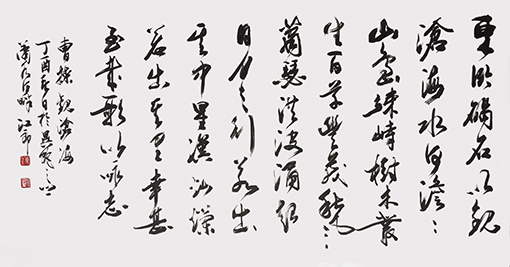 東臨碣石以觀
滄海水何澹〻
山島竦峙樹木叢
生百草豐茂秋風
蕭瑟洪波湧起
日月之行若出
其中星漢燦爛
若出其里幸甚
至哉歌以詠志
曹操觀滄海
丁酉